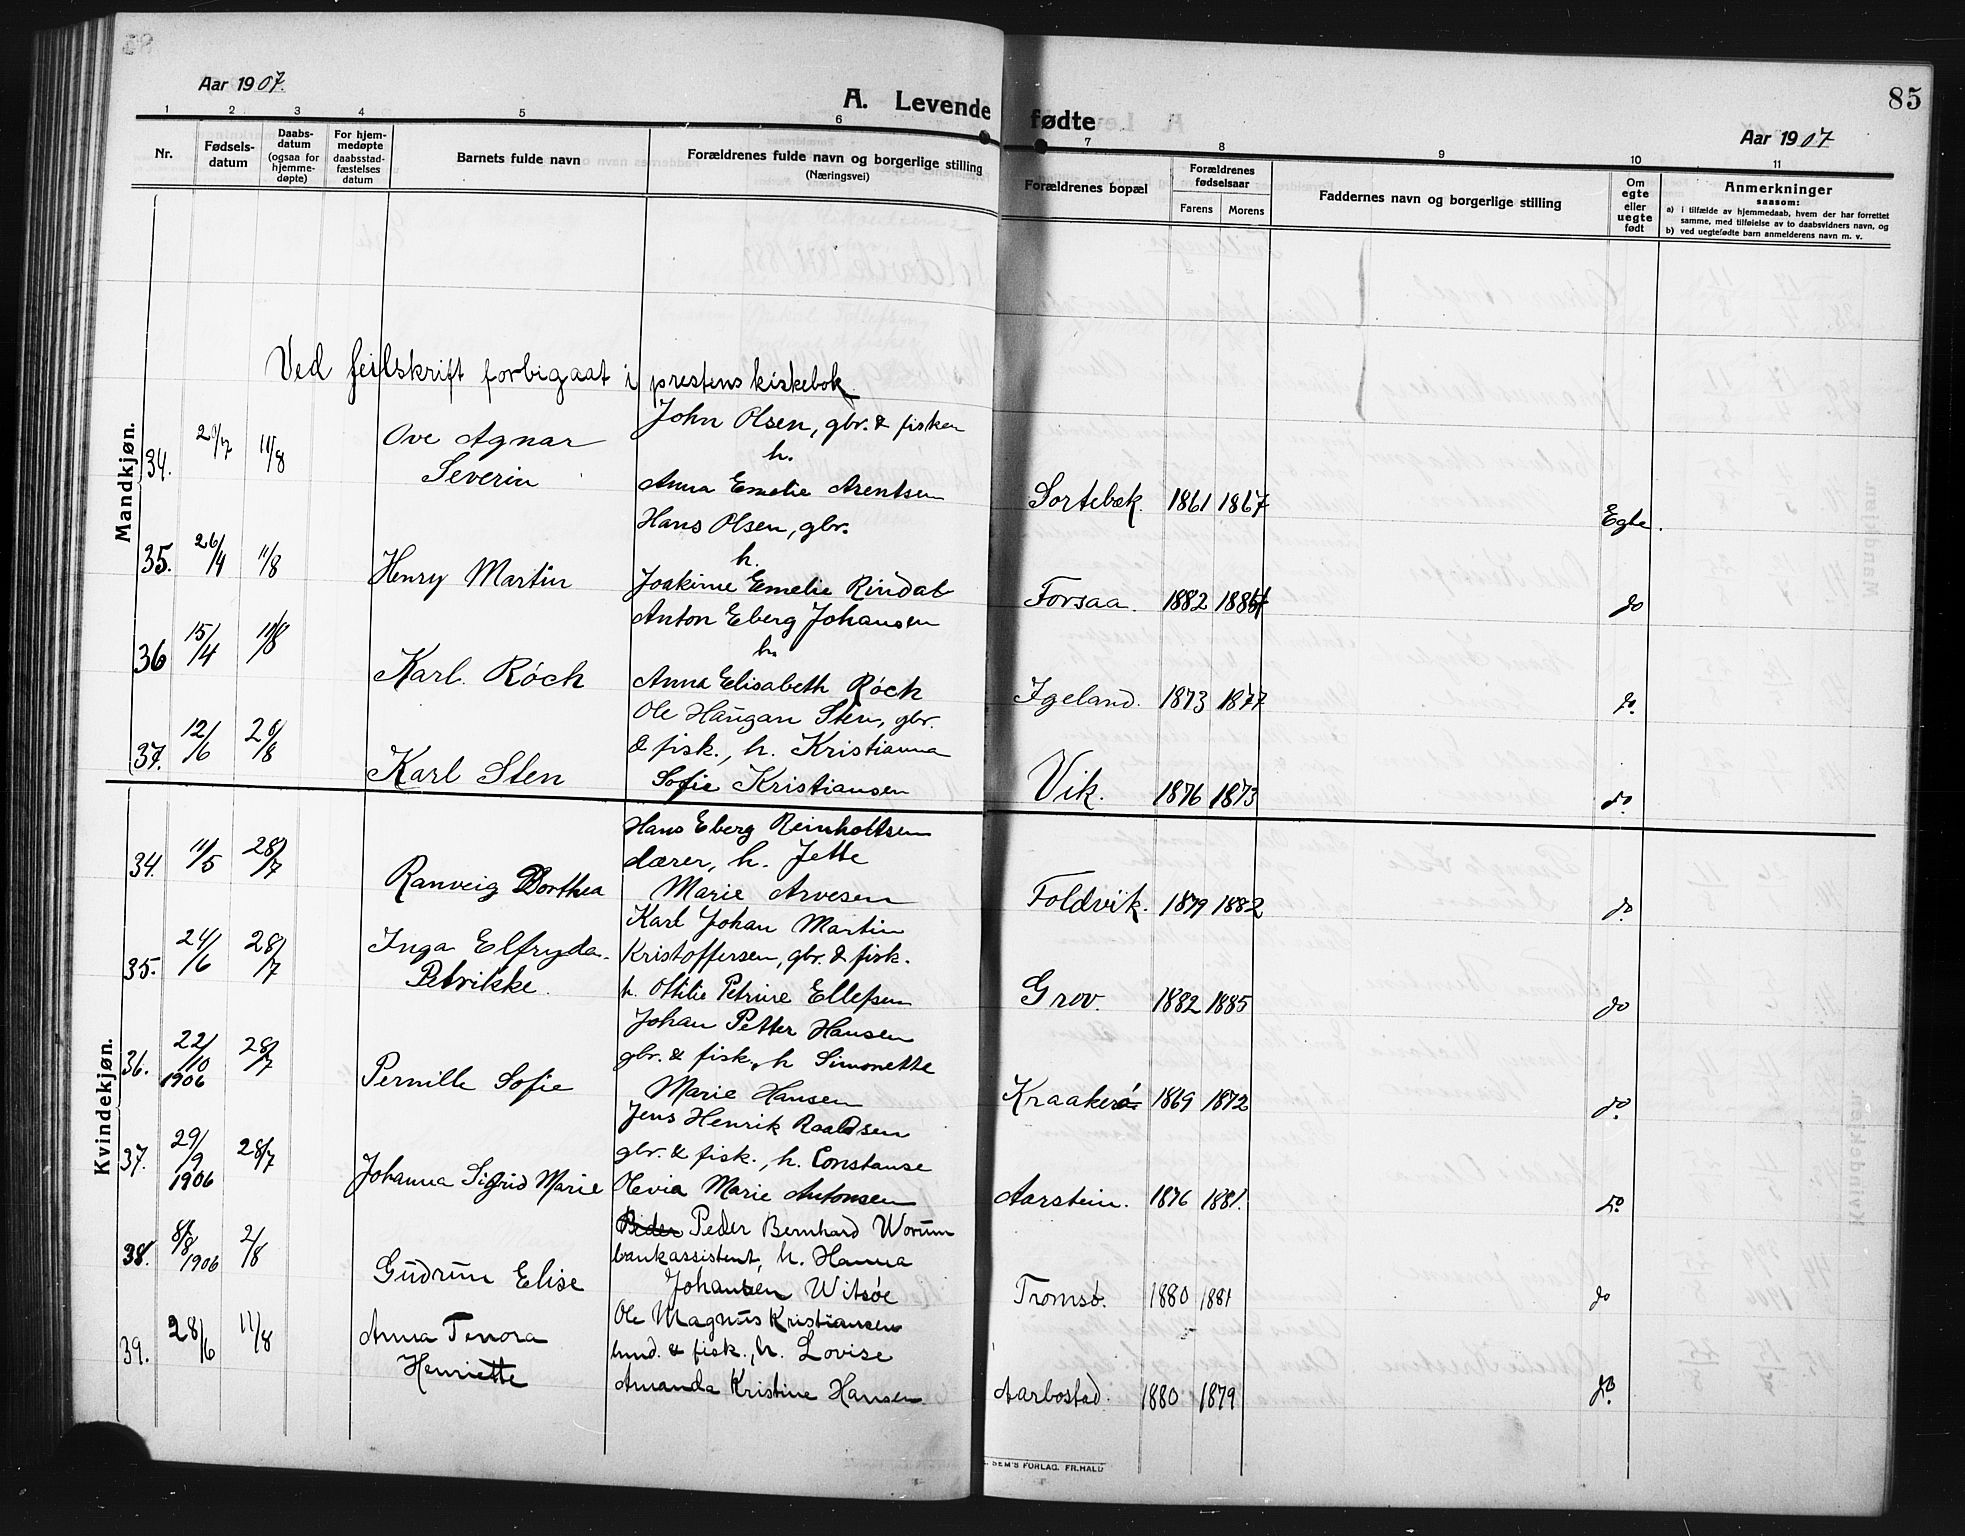 Aar 1907.
A. Levende fødte
85
Aar 1907
1 2 3 4 5 6 7 8 9 10 11
Nr.
Fødsels-datum
Daabs-datum (ogsaa for hjemme-døpte)
For hjem-medøpte daabsstad-fæstelses datum
Barnets fulde navn
Forældrenes fulde navn og borgerlige stilling
(Næringsvei)
Forældrenes bopæl
Forældrenes fødselsaar
Farens Morens
Faddernes navn og borgerlige stilling
Om egte eller uegte født
Anmerkninger
saasom:
a) i tilfælde av hjemmedaab, hvem der har forrettet
samme, med tilføielse av to daabsvidners navn, og
b) ved uegtefødte barn anmelderens navn m. v.
Ved feilskrift forbigaat i prestens kirkebok
Mandkjøn.
John Olsen, gbr. & fisker
34. 11/8 Ove Agnar h.
Severin Anna Emelie Arentsen Sortebæk. 1861 1867 Egte.
Hans Olsen, gbr.
35. 26/4 11/8 Henry Martin h.
Joakime Emelie Rindal Forsaa. 1882 do
Anton Eberg Johansen
36 15/4 Karl Røch h.
Anna Elisabeth Røch Igeland. 1873 1877 do.
Ole Haugan Sten, gbr.
37. 12/6 Karl Sten & fisk., h. Kristianna
Sofie Kristiansen Vik. 1876 1873 do
Kvindekjøn.
Hans Eberg Reinholtsen
34. 11/5 28/7 Ranveig Dorthea h. Jette
Marie Arvesen Foldvik. 1879 1882 do.
Karl Johan Martin
35. 24/6 28/7 Inga Elfryda Kristoffersen, gbr. & fisk.
Petrikke. h. Ottilie Petrine Ellefsen Grov. 1882 1885 do
Johan Petter Hansen
36. 22/10 1906 28/7 Pernille Sofie gbr. & fisk., h Simonette
Marie Hansen Kraakerø 1869 1872 do.
Jens Henrik Roaldsen
37. 29/9 1906 28/7 Johanna Sigrid Marie gbr. & fisk., h. Constanse
Olevia Marie Antonsen Aarstein. 1876 1881. do
Peder Bernhard Worum
38. 8/8 1906 2/8 Gudrun Elise bankassistent, h. Hanna
Johansen Witsøe Tromsø. 1880 1881 do
Ole Magnus Kristiansen
39. 28/6 11/8 Anna Tenora & fisk., h. Lovise
Henriette Amanda Kristine Hansen. Aarbostad. 1880 1879 do.
SEM'S FORLAG. FR.HALD